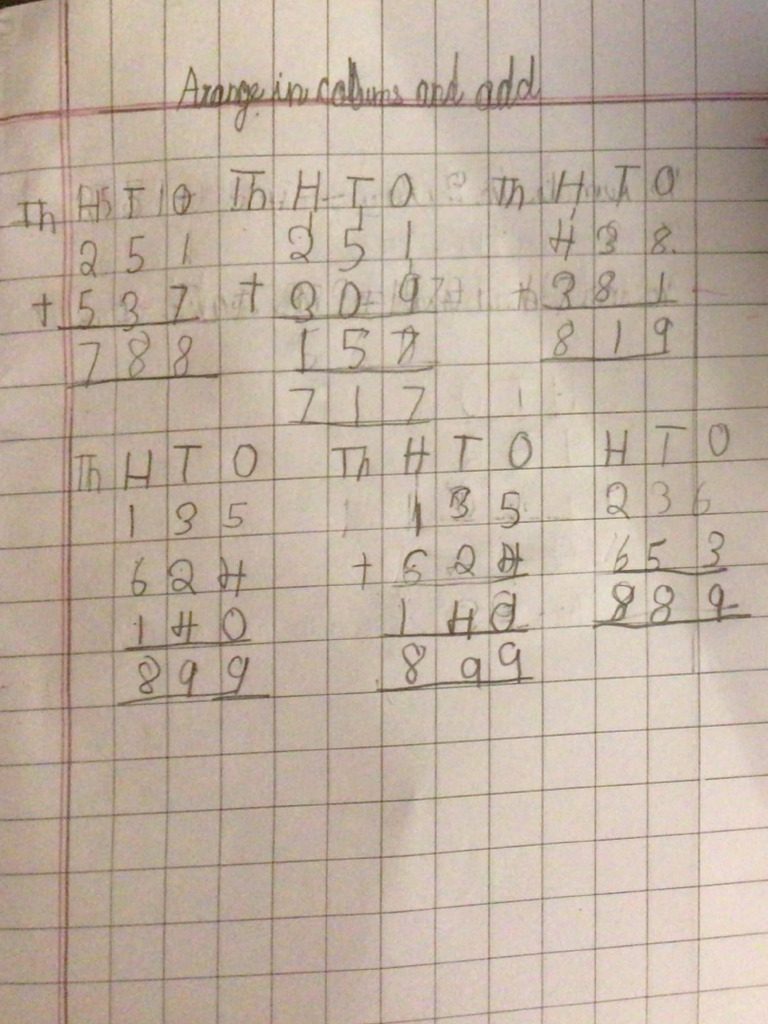 Arange in colums and add
Th H T O Th H T O Th H T O
2 5 1 2 5 1 4 3 8
+ 5 3 7 + 3 0 9 + 3 8 1
7 8 8 1 5 7 8 1 9
7 1 7
Th H T O Th H T O H T O
1 3 5 1 3 5 2 3 6
6 2 4 + 6 2 4 6 5 3
1 4 0 1 4 0 8 8 9
8 9 9 8 9 9